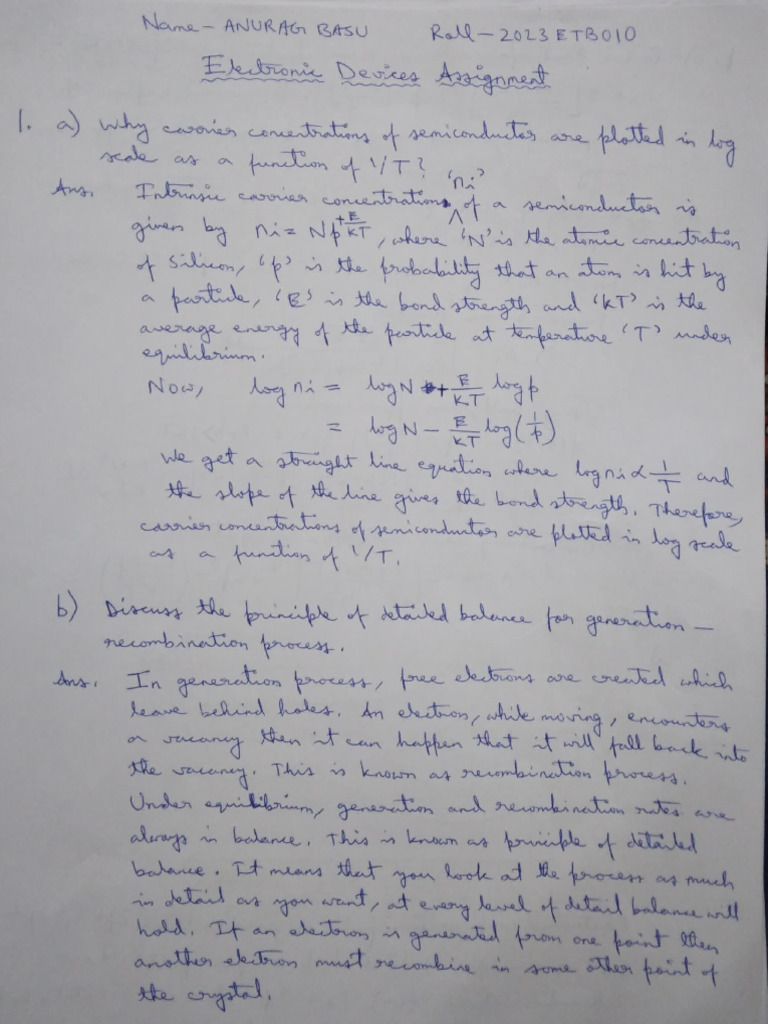 Name - ANURAG BASU Roll - 2023ETB010
Electronic Devices Assignment
1. a) Why carrier concentrations of semiconductor are plotted in log
scale as a function of 1/T?
'ni'
Ans. Intrinsic carrier concentrations ^ of a semiconductor is
given by ni = Np^(+E/KT), where 'N' is the atomic concentration
of Silicon, 'p' is the probability that an atom is hit by
a particle, 'E' is the bond strength and 'KT' is the
average energy of the particle at temperature 'T' under
equilibrium.
Now, log ni = logN + E/KT logp
= logN - E/KT log(1/p)
We get a straight line equation where log ni ∝ 1/T and
the slope of the line gives the bond strength. Therefore,
carrier concentrations of semiconductor are plotted in log scale
as a function of 1/T.
b) Discuss the principle of detailed balance for generation -
recombination process.
Ans. In generation process, free electrons are created which
leave behind holes. An electron, while moving, encounters
a vacancy then it can happen that it will fall back into
the vacancy. This is known as recombination process.
Under equilibrium, generation and recombination rates are
always in balance. This is known as principle of detailed
balance. It means that you look at the process as much
in detail as you want, at every level of detail balance will
hold. If an electron is generated from one point then
another electron must recombine in some other point of
the crystal.